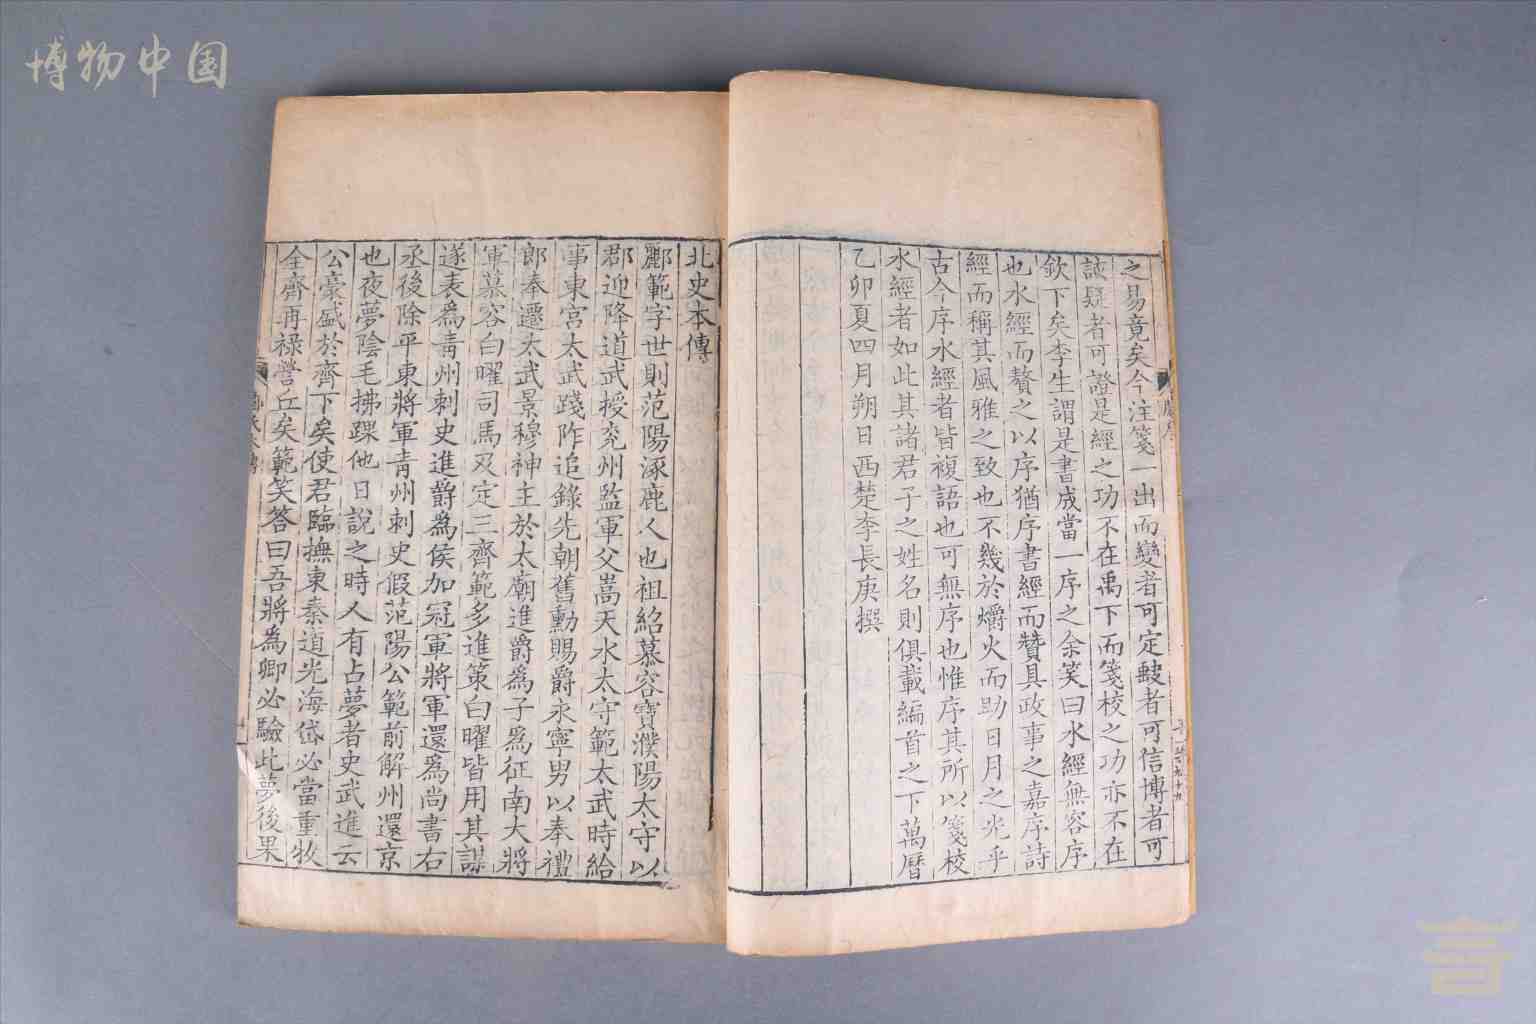 博物中国
之易竟矣今注箋一出而變者可定鼓者可信博者可
誠疑者可證是經之功不在禹下而箋校之功亦不在
欽下矣李生謂是書成當一序之余笑曰水經無容序
也水經而贅之以序猶序書經而贊其政事之嘉序詩
經而稱其風雅之致也不幾於爝火而助日月之光乎
古今序水經者皆複語也可無序也惟序其所以箋校
水經者如此其諸君子之姓名則俱載編首之下萬曆
乙卯夏四月朔日西楚李長庚撰
北史本傳
酈範字世則范陽涿鹿人也祖紹慕容寶濮陽太守以
郡迎降道武授兖州監軍父嵩天水太守範太武時給
事東宮太武踐阼追錄先朝舊勳賜爵永寧男以奉禮
郎奉遷太武景穆神主於太廟進爵爲子爲征南大將
軍慕容白曜司馬及定三齊範多進策白曜皆用其謀
遂表爲青州刺史進爵爲侯加冠軍將軍還爲尚書右
丞後除平東將軍青州刺史假范陽公範前解州還京
也夜夢陰毛拂踝他日說之時人有占夢者史武進云
公豪盛於齊下矣使君臨撫東秦道光海岱必當重牧
全齊再祿營丘矣範笑答曰吾將為卿必驗此夢後果